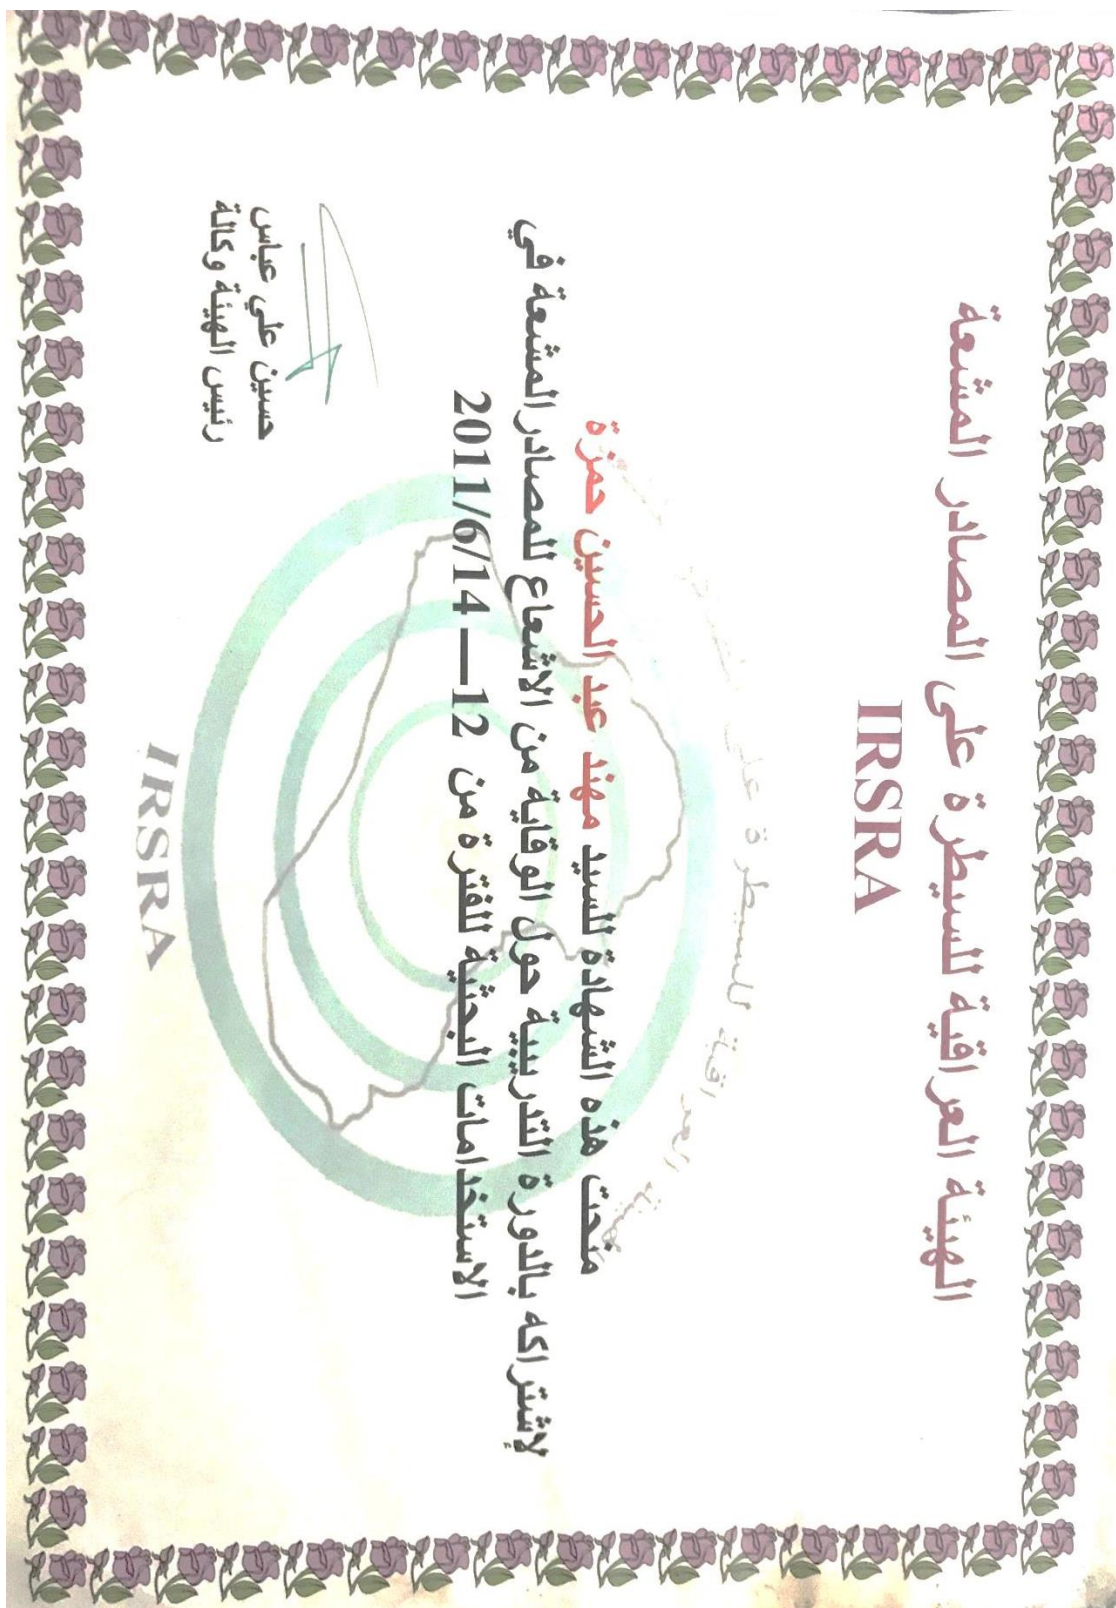 الهيئة العراقية للسيطرة على المصادر المشعة
IRSRA
منحت هذه الشهادة للسيد مهند عبد الحسين حمزة
لإشتراكه بالدورة التدريبية حول الوقاية من الاشعاع للمصادر المشعة في
الاستخدامات البحثية للفترة من 12 — 2011/6/14
حسين علي عباس
رئيس الهيئة وكالة
العراقية للسيطرة على
IRSRA